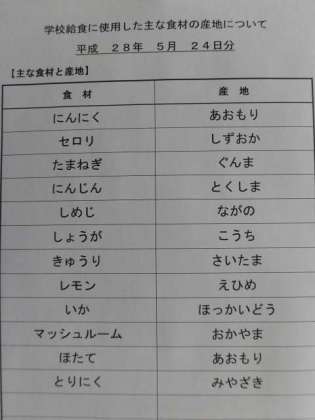 学校給食に使用した主な食材の産地について
平成 28年 5月 24日分
【主な食材と産地】
食 材 産 地
にんにく あおもり
セロリ しずおか
たまねぎ ぐんま
にんじん とくしま
しめじ ながの
しょうが こうち
きゅうり さいたま
レモン えひめ
いか ほっかいどう
マッシュルーム おかやま
ほたて あおもり
とりにく みやざき